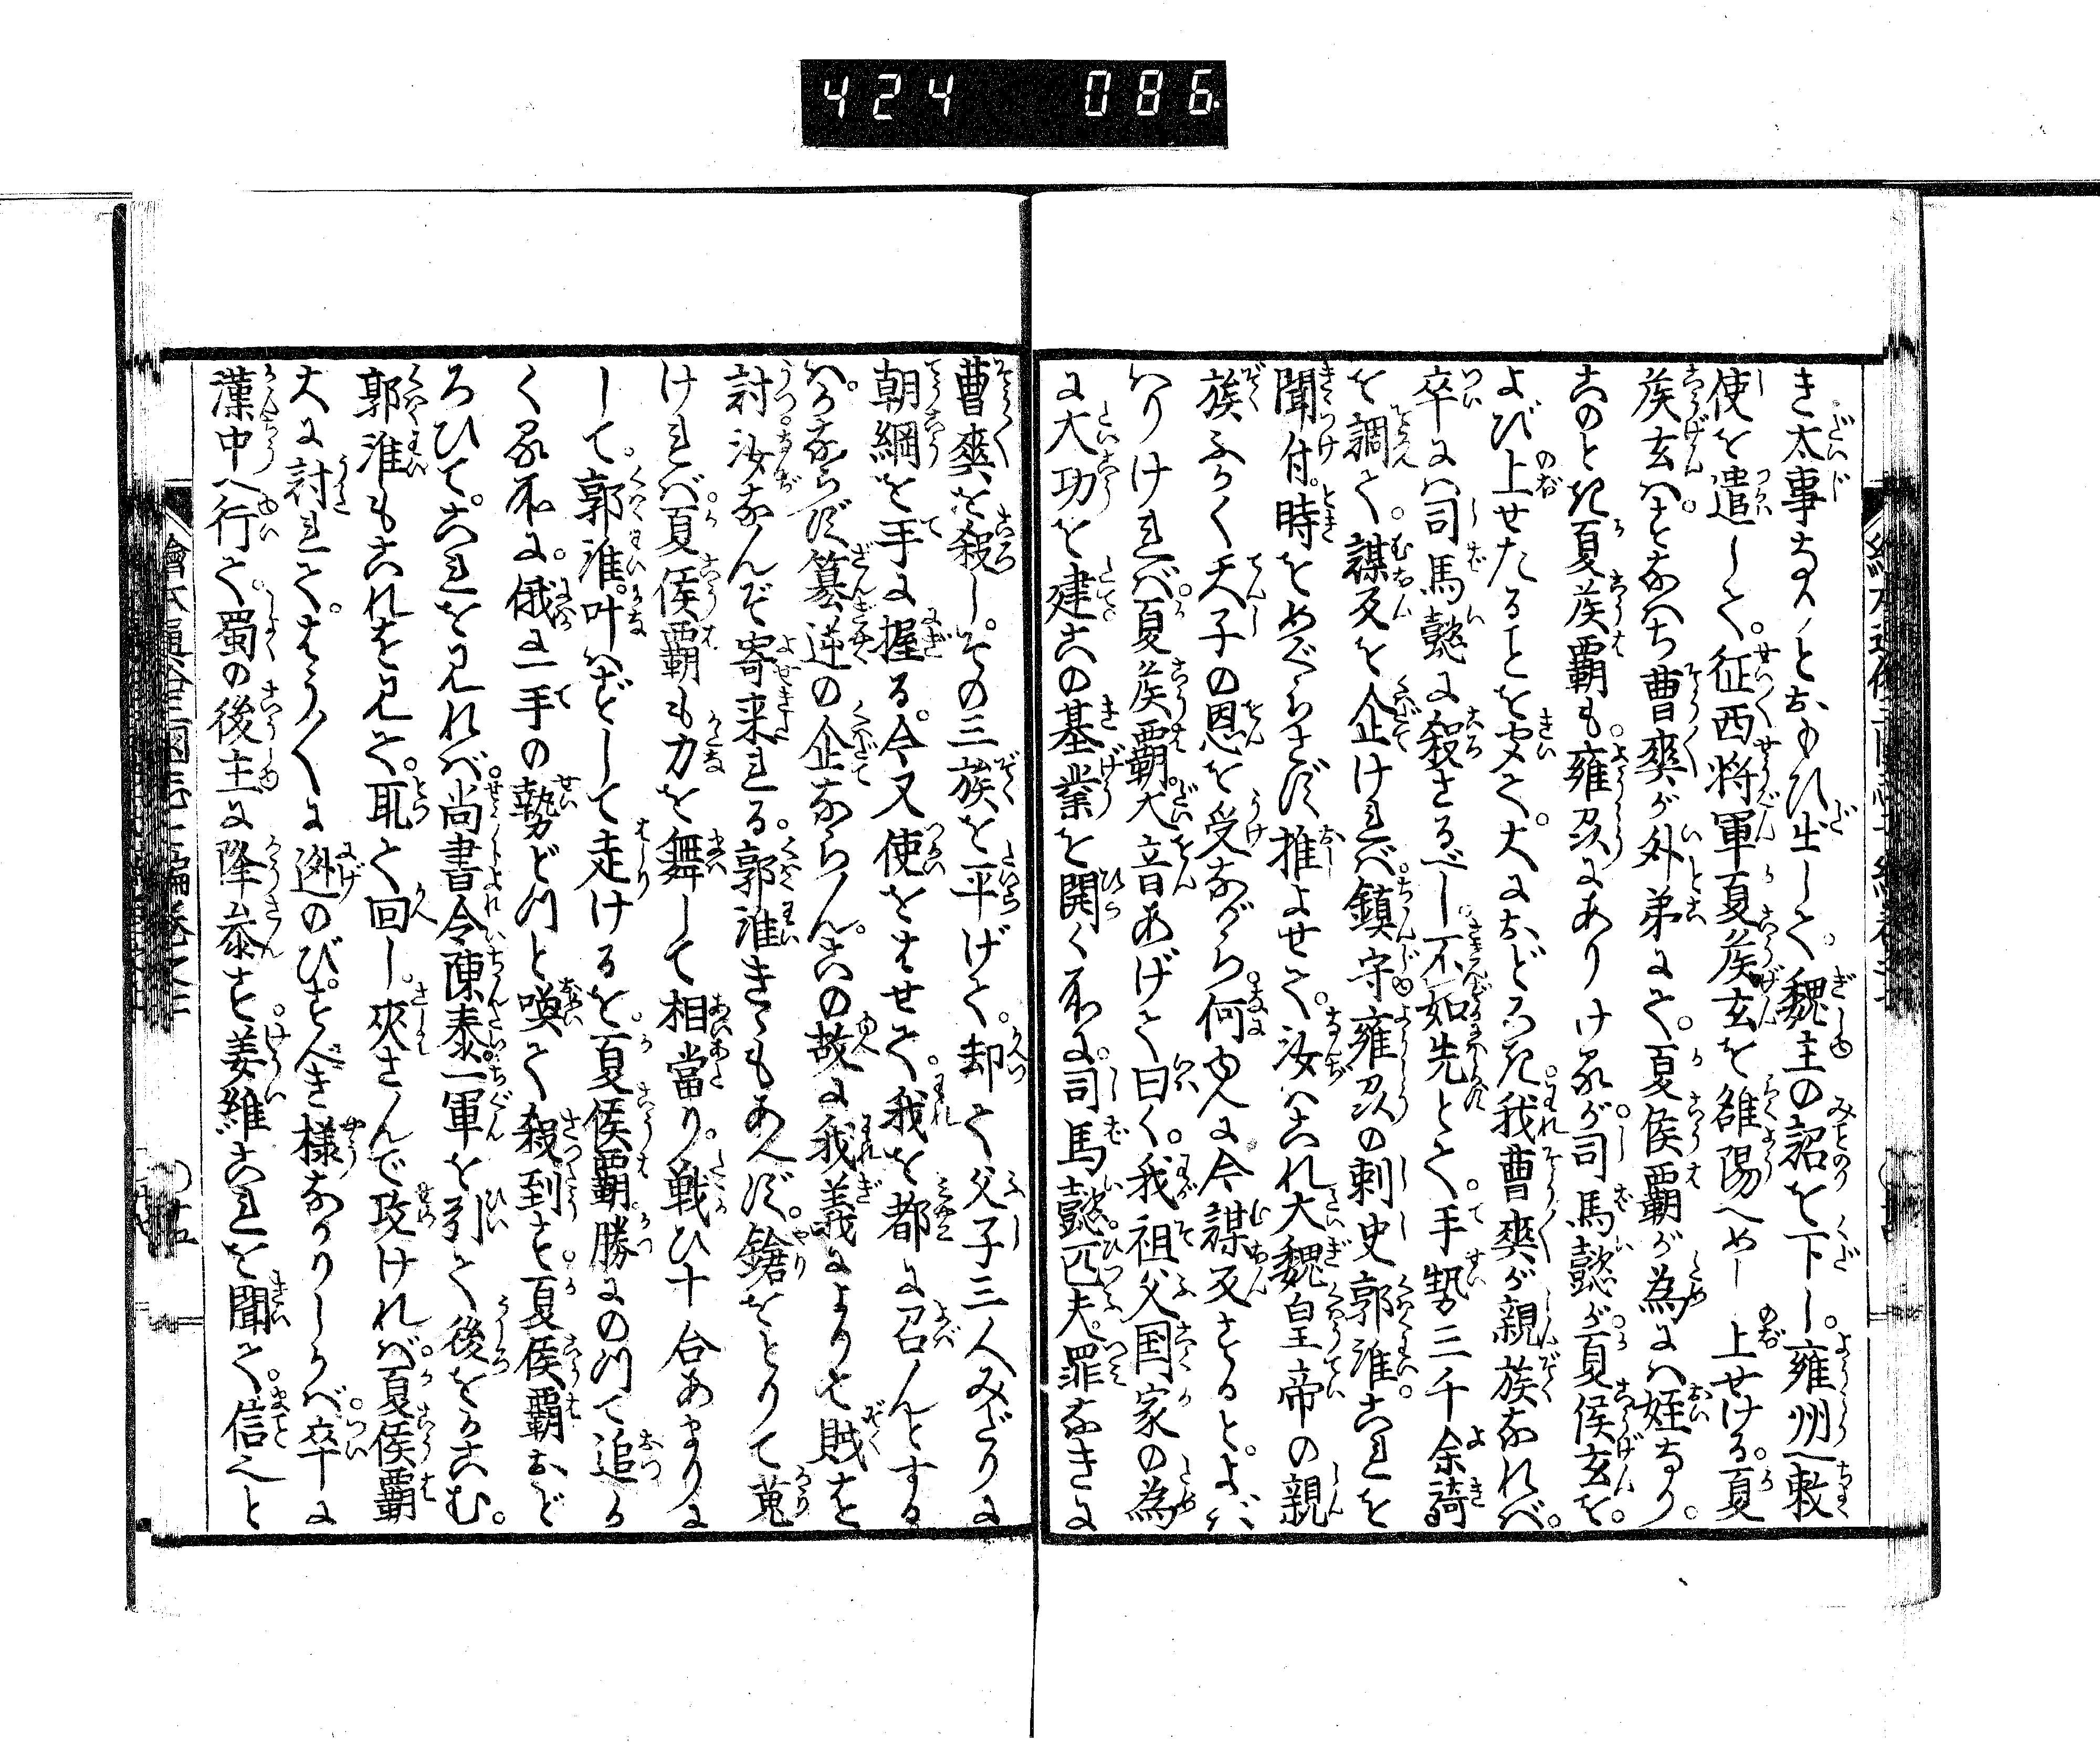 424 086
き太事なりとおもひ出して。魏主の詔を下し。雍州へ敕
使を遣して。征西将軍夏侯玄を雒陽へめし上せける。夏
侯玄はすなはち曹爽が外弟にて。夏侯覇が為には姪なり。
このとき夏侯覇も雍州にありけるが司馬懿が夏侯玄を。
よび上せたることを聞て。大におどろき。我曹爽が親族なれば。
卒には司馬懿に殺さるべし。不如先とて。手勢三千余騎
を調て。謀反を企ければ。鎮守雍州の刺史郭淮。これを
聞付。時をめぐらさず推よせて。汝はこれ大魏皇帝の親
族ふかく天子の恩を受ながら。何ゆへに今謀反するとよば
はりければ。夏侯覇。大音あげて曰く。我祖父国家の為
に大功を建この基業を開く所に。司馬懿匹夫。罪なきに
曹爽を殺し。その三族を平げて。却て父子三人みだりに
朝綱を手に握る。今又使をはせて。我を都に召んとする
は。かならず簒逆の企ならん。この故に我義によりて賊を
討。汝なんぞ寄来れる。郭淮きゝもあへず。鎗をとりて蒐
ければ。夏侯覇も刀を舞して相當り。戦ひ十合あまりに
して。郭淮。叶はずして走けるを。夏侯覇勝にのつて追か
くる所に。俄に一手の勢どつと喚て殺到す。夏侯覇おど
ろひて。これを見れば。尚書令陳泰。一軍を引て後をかこむ。
郭淮もこれを見て。取て回し。夾さんで攻ければ。夏侯覇
大に討れて。はう〱に迯のび。すべき様なかりしかば。卒に
漢中へ行て。蜀の後主に降参す。姜維これを聞て。信へと
繪本通俗三國志七編巻之二
〇五